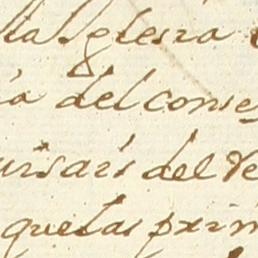 sta Iglesia
ia del conse
ursaris del Te
que las prim